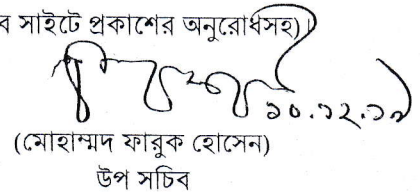 ব সাইটে প্রকাশের অনুরোধসহ)।
১০.১২.১৯
(মোহাম্মদ ফারুক হোসেন)
উপ সচিব